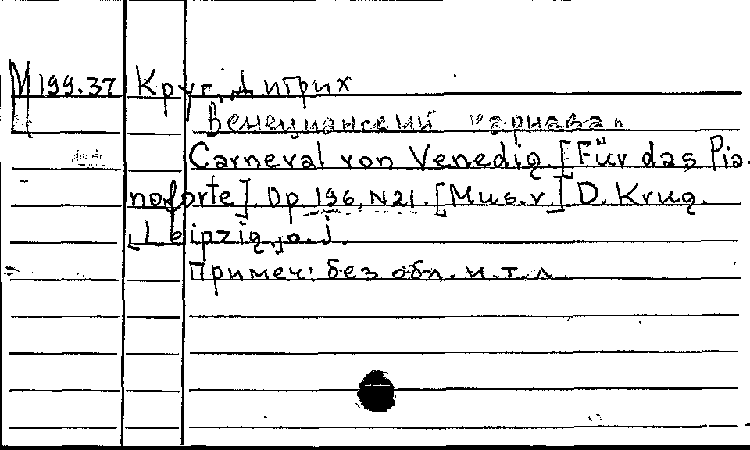 М 199.37 Круг, Дитрих
Венецианский карнавал
Carneval von Venedig. [Für das Pia-
noforte]. Op. 196, N21. [Mus. v.] D. Krug.
Leipzig, o. j.
Примеч: без обл. и т. л.